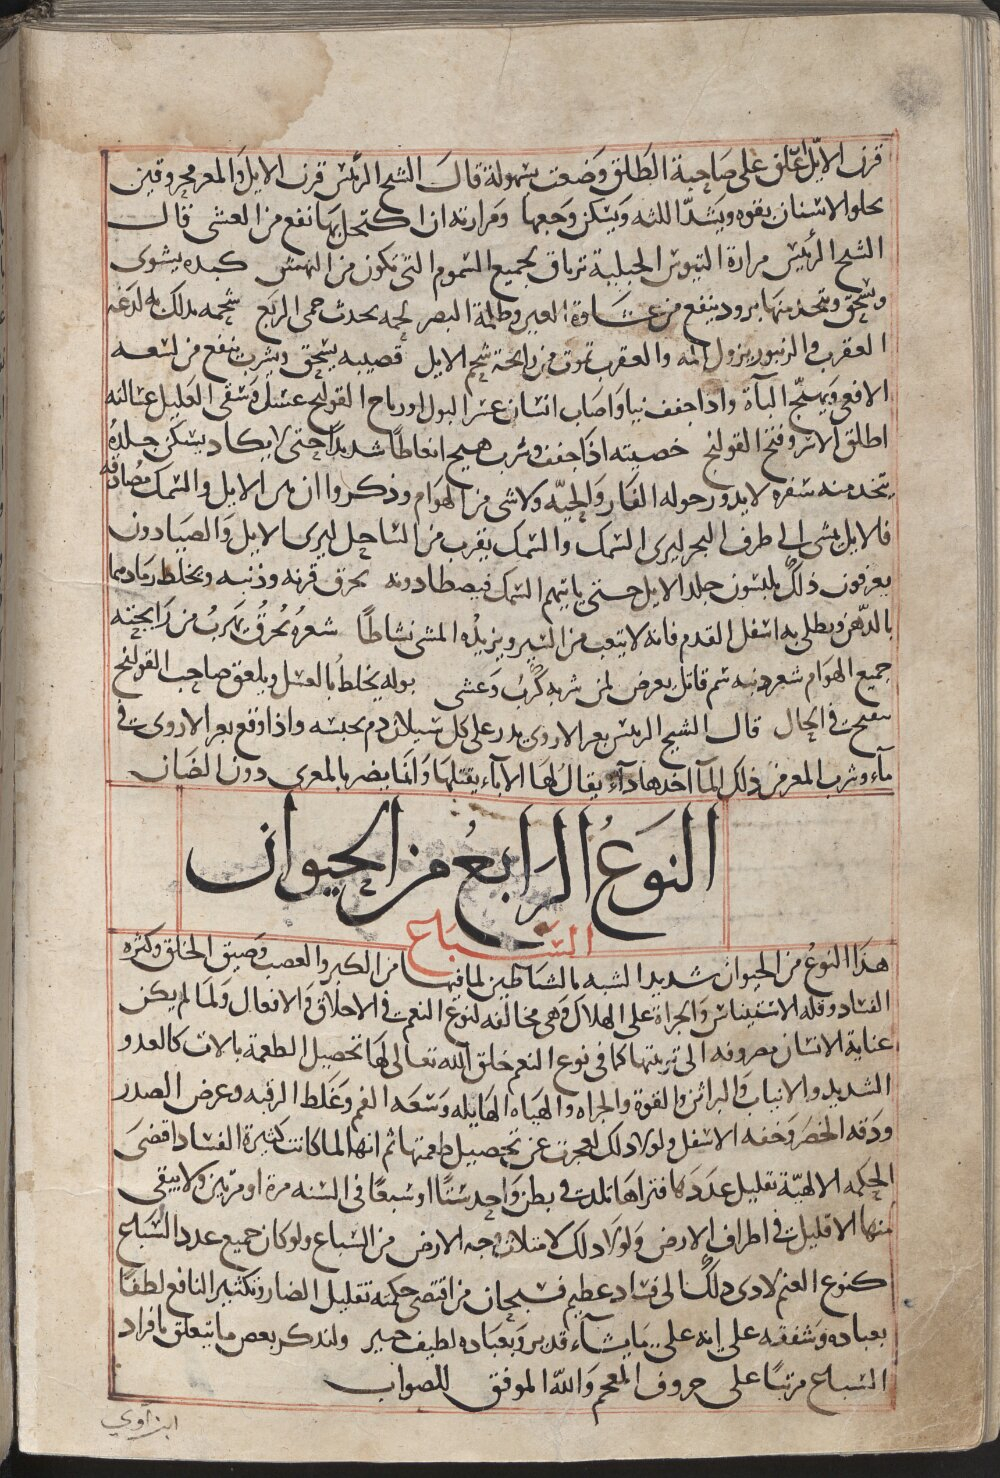 قرن الايّل اعلّق على صاحبة الطلق وضعت بسهولة قال الشيخ الرئيس قرن الايل والمعز محروقين
يجلو الاسنان بقوه ويشدّ اللثه ويسكن وجعها ومرارته ان اكتحل بها نفع من العشى قال
الشيخ الرئيس مرارة التيوس الجبلية ترياق لجميع السموم التى تكون من النهش كبده يشوى
ويسحق ويتخذ منها برود ينفع من غشاوة العين وظلمة البصر لحمه يحدث حمى الربع شحمه يدلك به لدغه
العقرب والزنبور يزول المه والعقرب تموت من رايحة شحم الايل قضيبه يسحق ويشرب ينفع من لسعه
الافعى ويهيّج البآة واذا جفف واصاب انسان عسر البول او رياح القولنج غسل وسقى العليل غسالته
اطلق الاسر وفتح القولنج خصيته اذا جفف وشرب هيج انعاظا شديدا حتى لا يكاد يسكن جلده
يتخذ منه سفره لا يدور حوله الفار والحيّه ولا شى من الهوام وذكروا ان بين الايل والسمك مصادقه
فالايل يمشى الى طرف البحر ليرى السمك والسمك يقرب من الساحل ليرى الايل والصيادون
يعرفون ذلك يلبسون جلد الايل حتى ياتيهم السمك فيصطادونه يحرق قرنه وذنبه ويخلط رمادهما
بالدهن ويطلى به اسفل القدم فانه لا يتعب من السير ويزيد المشى نشاطا شعره يحرق يهرب من رايحته
جميع الهوام شعر ذنبه سم قاتل يعرض لمن شربه كرب وغشى بوله يخلط بالعسل ويلعق صاحب القولنج
ينفتح فى الحال قال الشيخ الرئيس بعر الاروى يذر على كل سيلان دم يحبسه واذا وقع بعر الاروى فى
مآء وشرب المعز من ذلك المآ اخذها دآء يقال لها الابآء يقتلها وانما يضر بالمعزى دون الضان
النوع الرابع من الحيوان
السباع
هذا النوع من الحيوان شديد الشبه بالشياطين لما فيها من الكبر والغضب وضيق الخلق وكثره
الفساد وقله الاستيناس والجراة على الهلاك وهى مخالفه لنوع النعم فى الاخلاق والافعال ولما لم يكن
عناية الانسان مصروفه الى تربيتها كما فى نوع النعم خلق الله تعالى لها تحصيل الطعمة بالات كالعدو
الشديد والانياب والبراثن والقوة والجراه والهياه الهايله وسعه الفم وغلظ الرقبه وعرض الصدر
ودقه الخصر وخفه الاسفل ولولا ذلك لعجزت عن تحصيل طعمتها ثم انها لما كانت كثيرة الفساد اقتضى
الحكمه الالهيّة تقليل عددها فتراها تلد فى بطن واحد ستّا او سبعا فى السنه مرة او مرتين ولا يبقى
منها الا قليل فى اطراف الارض ولولا ذلك لامتلات وجه الارض من السباع ولو كان جميع عدد السباع
كنوع الغنم لادى ذلك الى فساد عظيم فسبحان من اقتضى حكمته تقليل الضار وتكثير النافع لطفا
بعباده وشفقه على انه على ما يشآء قدير وبعباده لطيف خبير ولنذكر بعض ما يتعلق بافراد
السباع مرتبا على حروف المعجم والله الموفق للصواب